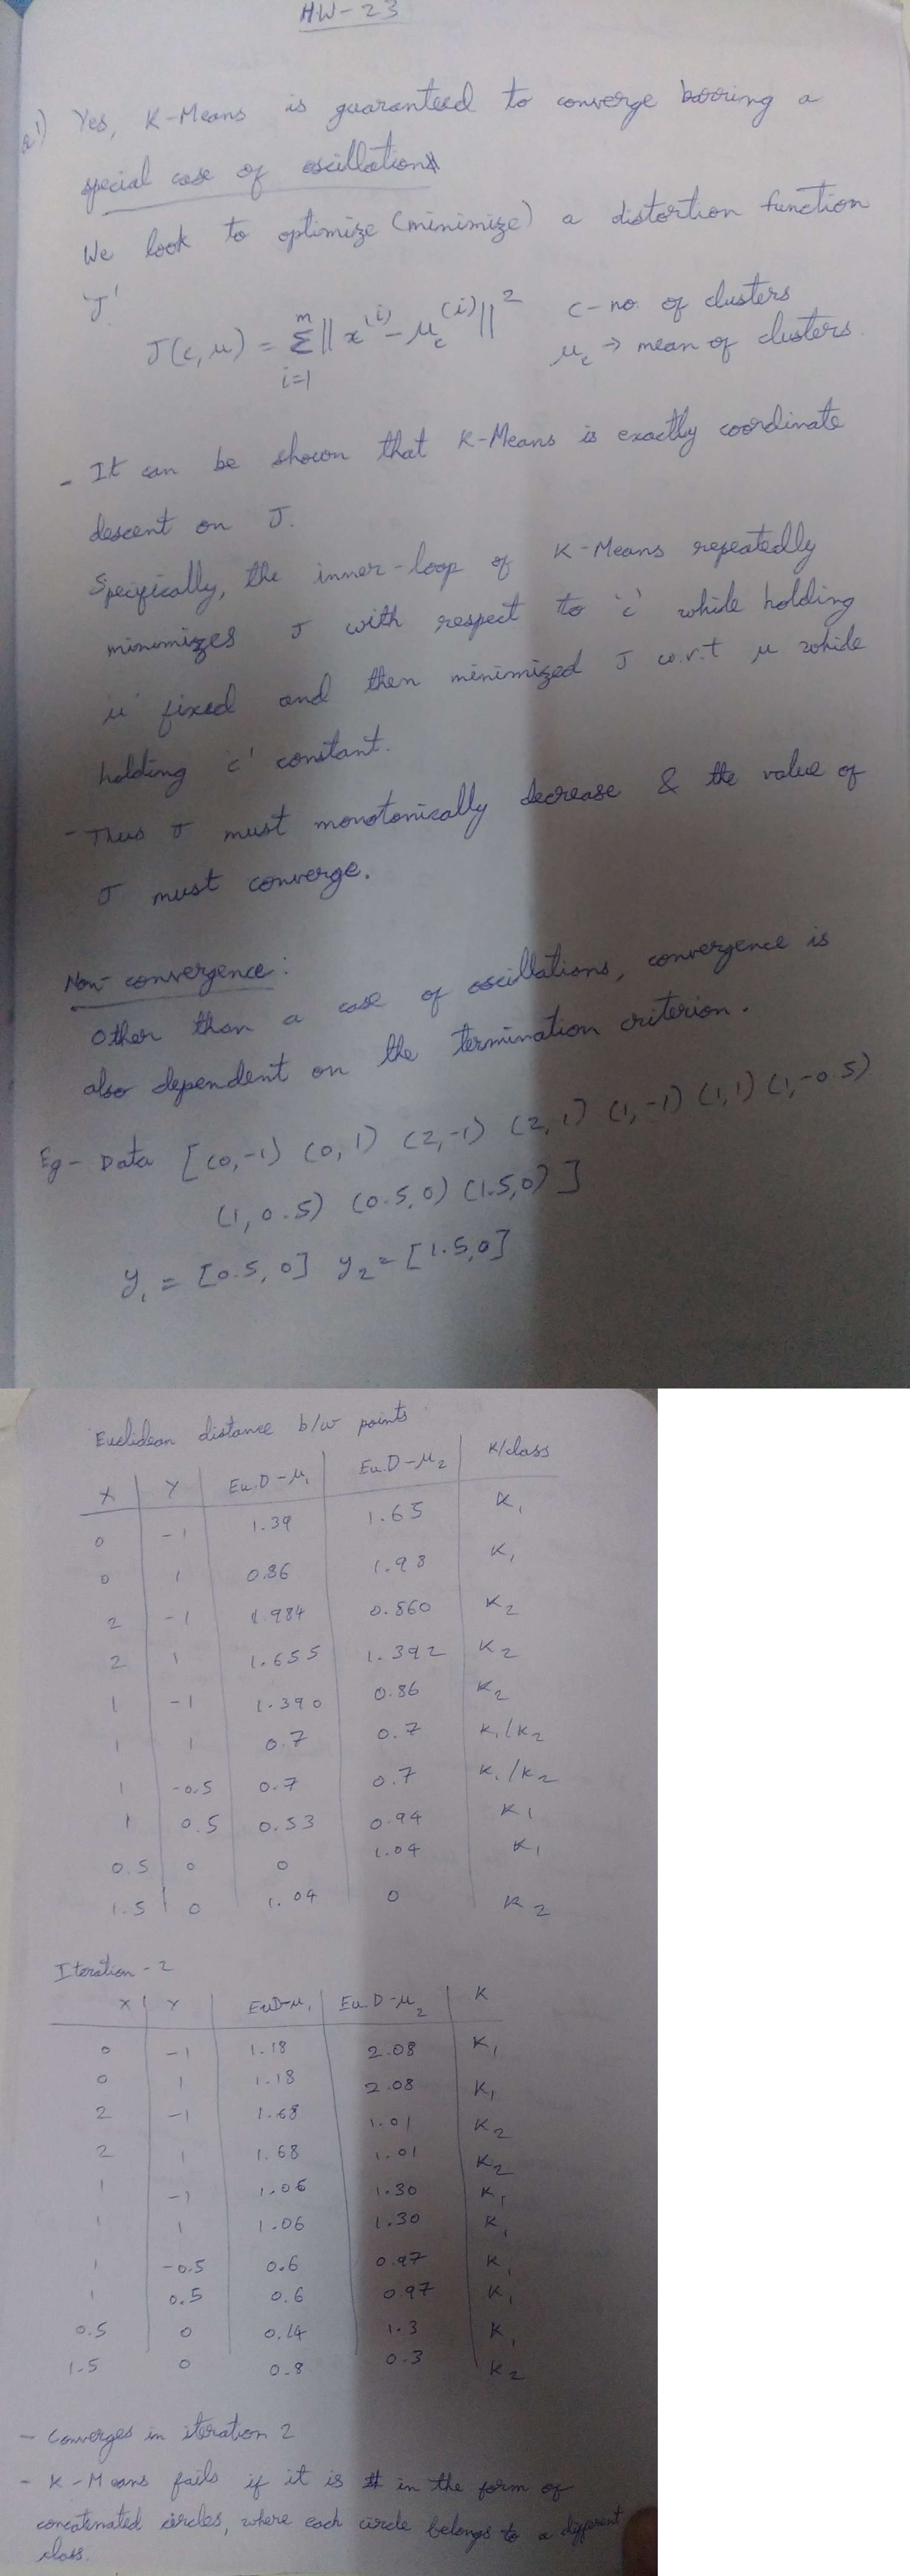 HW-23
Q1) Yes, K-Means is guaranteed to converge barring a
special case of oscillations
We look to optimize (minimize) a distortion function
'J'
J(c,μ) = Σ_{i=1}^{m} || x^{(i)} - μ_c^{(i)} ||^2   c - no. of clusters
μ_c → mean of clusters.
- It can be shown that K-Means is exactly coordinate
descent on J.
Specifically, the inner-loop of K-Means repeatedly
minimizes J with respect to 'c' while holding
μ' fixed and then minimized J w.r.t μ while
holding c' constant.
- Thus J must monotonically decrease & the value of
J must converge.
Non-convergence:
Other than a case of oscillations, convergence is
also dependent on the termination criterion.
Eg- Data [(0,-1) (0,1) (2,-1) (2,1) (1,-1) (1,1) (1,-0.5)
(1,0.5) (0.5,0) (1.5,0)]
y1 = [0.5,0] y2 = [1.5,0]
Euclidean distance b/w points
X Y Eu.D-μ1 Eu.D-μ2 K/class
0 -1 1.39 1.65 K1
0 1 0.86 1.98 K1
2 -1 1.984 0.860 K2
2 1 1.655 1.392 K2
1 -1 1.390 0.86 K2
1 1 0.7 0.7 K1/K2
1 -0.5 0.7 0.7 K1/K2
1 0.5 0.53 0.94 K1
0.5 0 0 1.04 K1
1.5 0 1.04 0 K2
Iteration - 2
X Y EuD-μ1 Eu.D-μ2 K
0 -1 1.18 2.08 K1
0 1 1.18 2.08 K1
2 -1 1.68 1.01 K2
2 1 1.68 1.01 K2
1 -1 1.06 1.30 K1
1 1 1.06 1.30 K1
1 -0.5 0.6 0.97 K1
1 0.5 0.6 0.97 K1
0.5 0 0.14 1.3 K1
1.5 0 0.8 0.3 K2
- Converges in iteration 2
- K-Means fails if it is in the form of
concatenated circles, where each circle belongs to a different
class.